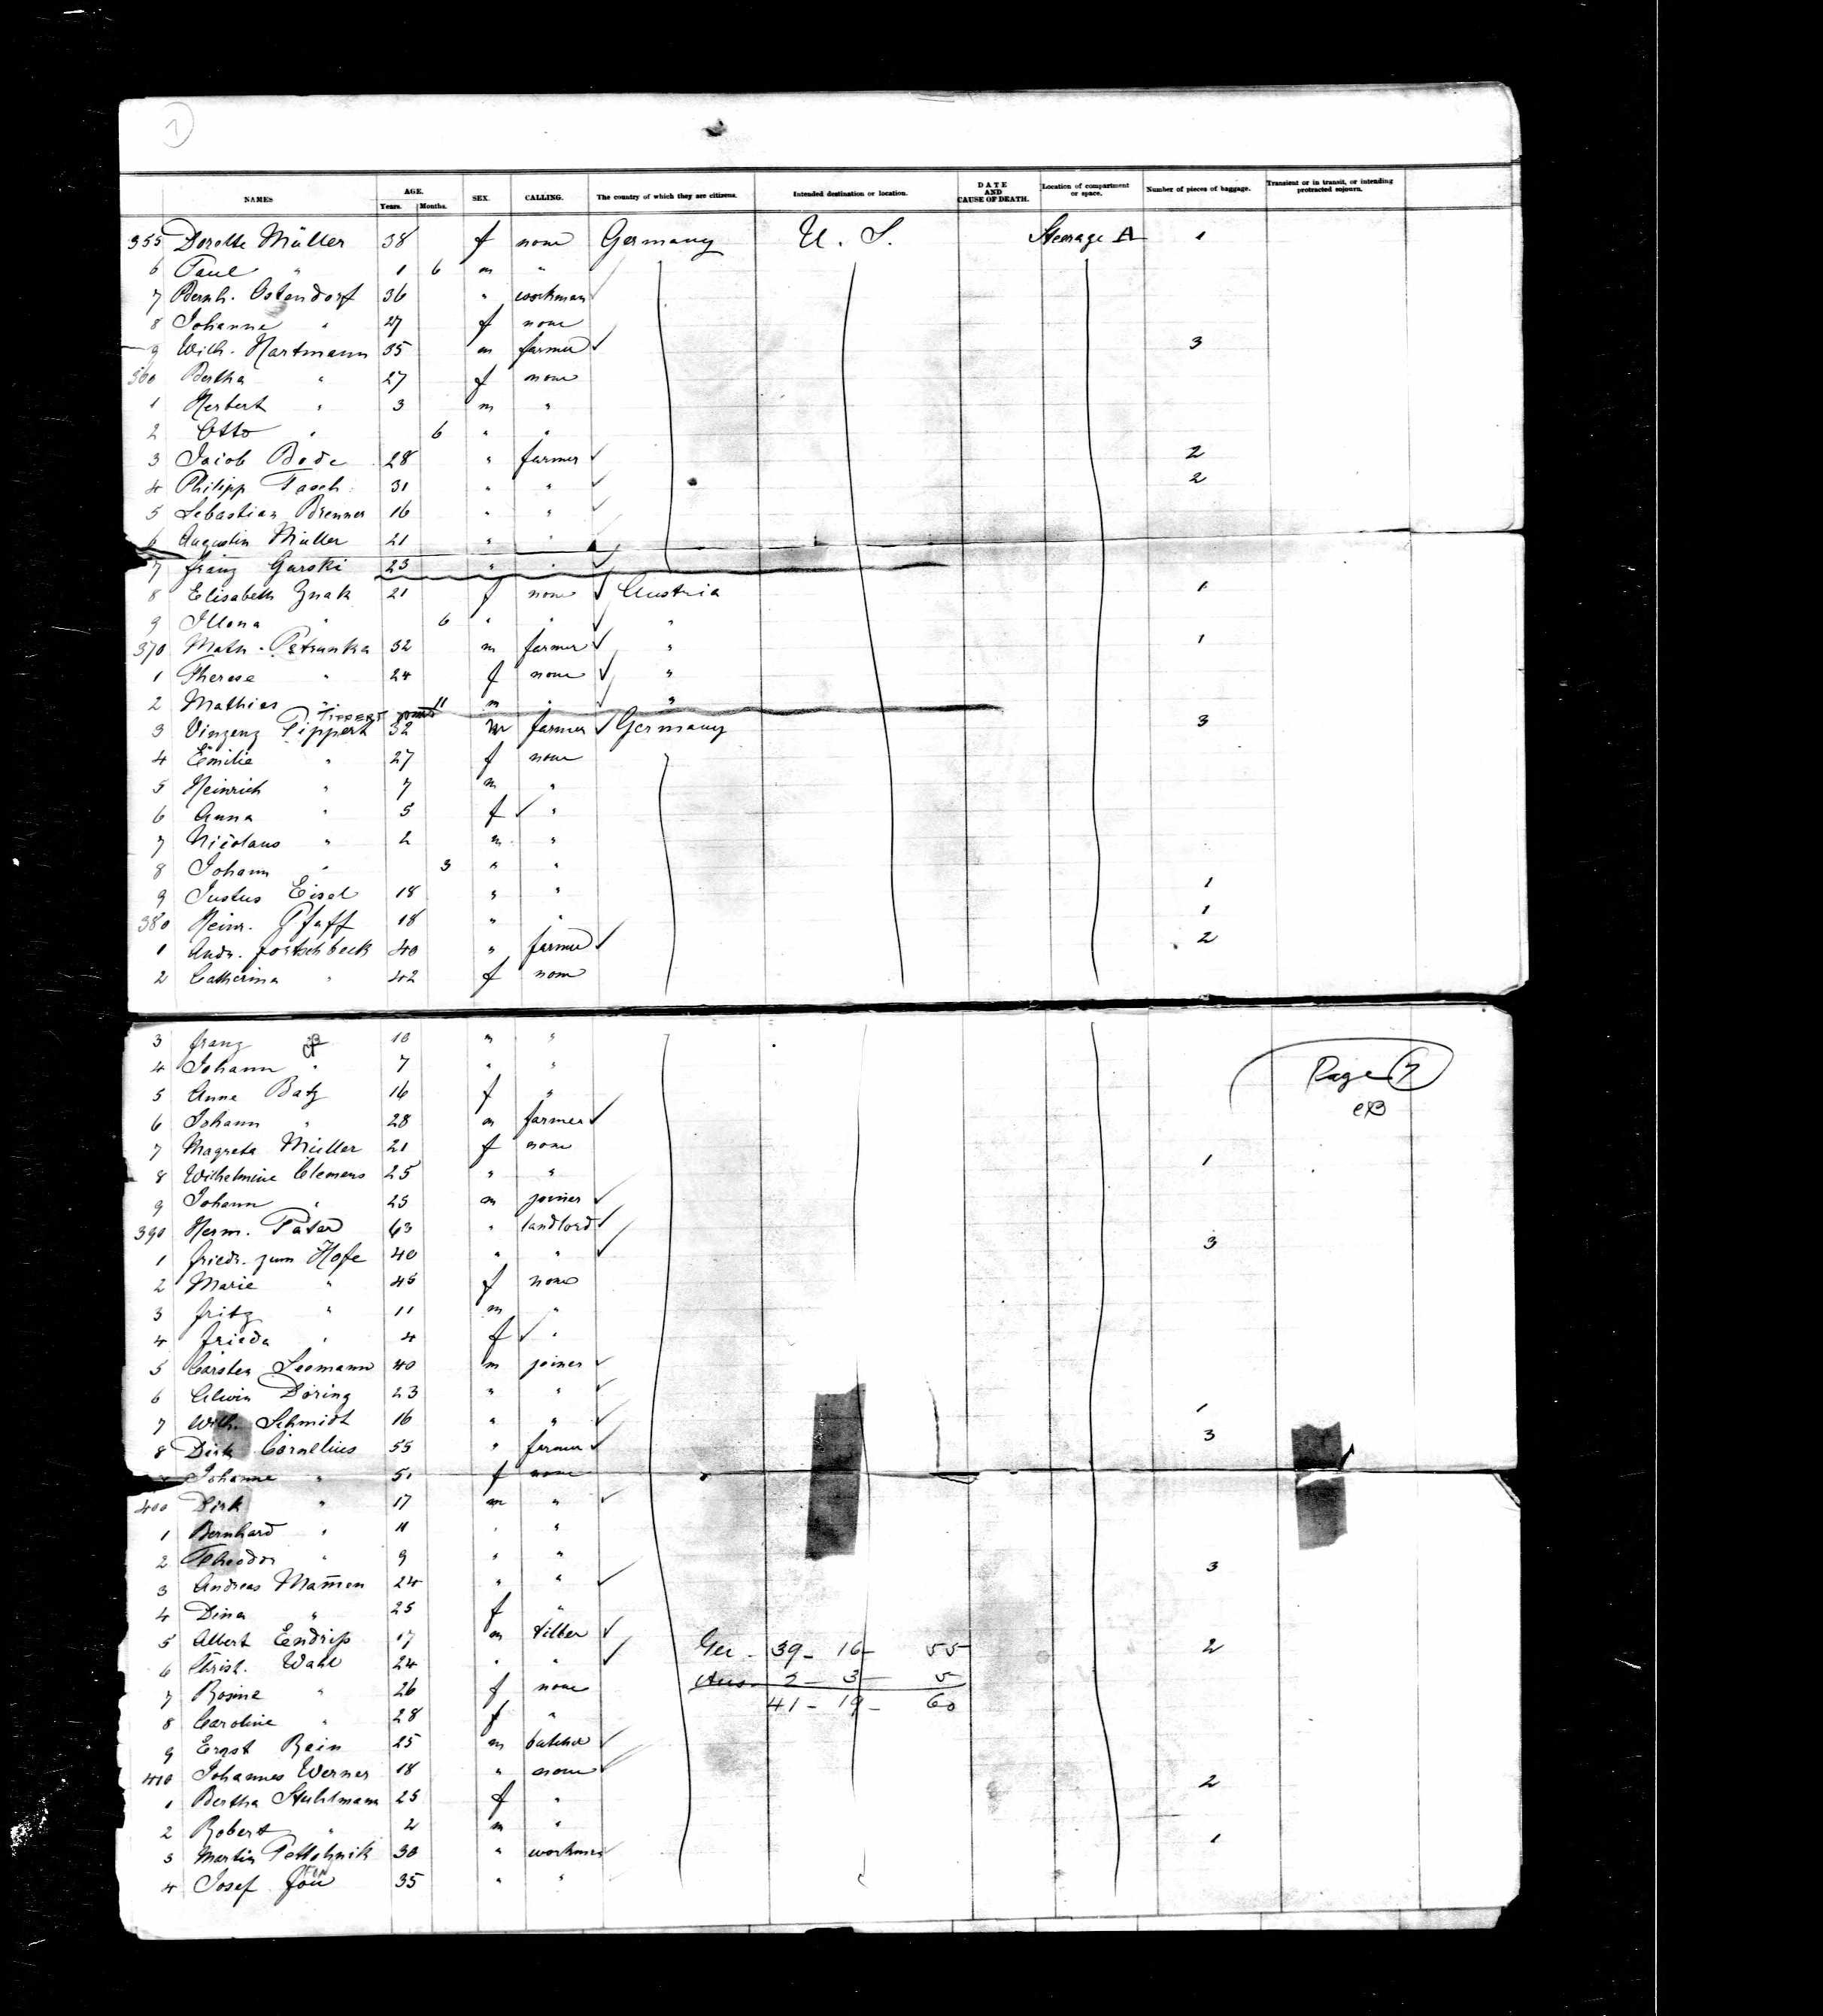 7
NAMES AGE. Years. Months. SEX. CALLING. The country of which they are citizens. Intended destination or location. DATE AND CAUSE OF DEATH. Location of compartment or space. Number of pieces of baggage. Transient or in transit, or intending protracted sojourn.
355 Dorothe Müller 38 f none Germany U. S. Steerage A 1
6 Paul " 1 6 m "
7 Bernh. Ostendorf 36 " workman ✓
8 Johanne " 27 f none
9 Wilh. Hartmann 35 m farmer ✓ 3
360 Bertha " 27 f none
1 Herbert " 3 m "
2 Otto " 6 " "
3 Jacob Bode 28 " farmer ✓ 2
4 Philipp Pasch 31 " " ✓ 2
5 Sebastian Brenner 16 " " ✓
6 Augustin Müller 21 " "
7 Franz Gurski 23 " " ✓
8 Elisabeth Znak 21 f none ✓ Austria 1
9 Illona " 6 " " ✓ "
370 Math. Petrunka 32 m farmer ✓ " 1
1 Therese " 24 f none ✓ "
2 Mathias " 11 m " ✓ "
TIPPERT
3 Vinzenz Tippert 32 m farmer ✓ Germany 3
4 Emilie " 27 f none
5 Heinrich " 7 m "
6 Anna " 5 f ✓ "
7 Nicolaus " 2 m "
8 Johann " 3 " "
9 Justus Eisel 18 " " 1
380 Heinr. Pfaff 18 " " 1
1 Andr. Fortschbeck 40 " farmer ✓ 2
2 Catherina " 42 f none
3 Franz 10 " "
4 Johann " 7 " "
Page 7
5 Anna Batz 16 f "
6 Johann " 28 m farmer ✓
7 Magreta Müller 21 f none
8 Wilhelmine Clemens 25 " " 1
9 Johann " 25 m joiner ✓
390 Herm. Pater 63 " landlord ✓
1 Friedr. zum Hofe 40 " " ✓ 3
2 Marie " 45 f none
3 Fritz " 11 m "
4 Frieda " 4 f ✓ "
5 Carsten Seemann 40 m joiner ✓
6 Alwin Döring 23 " " ✓
7 Wilh. Schmidt 16 " " ✓ 1
8 Dirk Cornelius 55 " farmer ✓ 3
Johanne " 51 f none
400 Dirk " 17 m " ✓
1 Bernhard " 11 " "
2 Theodor " 9 " "
3 Andreas Mam̄en 24 " " ✓ 3
4 Dina " 25 f "
5 Albert Endriß 17 m tiller ✓ 2
Ger - 39 - 16 - 55
6 Christ. Wahl 24 " " ✓
Aus - 2 - 3 - 5
7 Rosine " 26 f none
41 - 19 - 60
8 Caroline " 28 f "
9 Ernst Rein 25 m butcher ✓
410 Johannes Werner 18 " none ✓
1 Bertha Stuhlmann 25 f " 2
2 Robert " 2 m "
3 Martin 30 " workman ✓ 1
4 Josef 35 " "